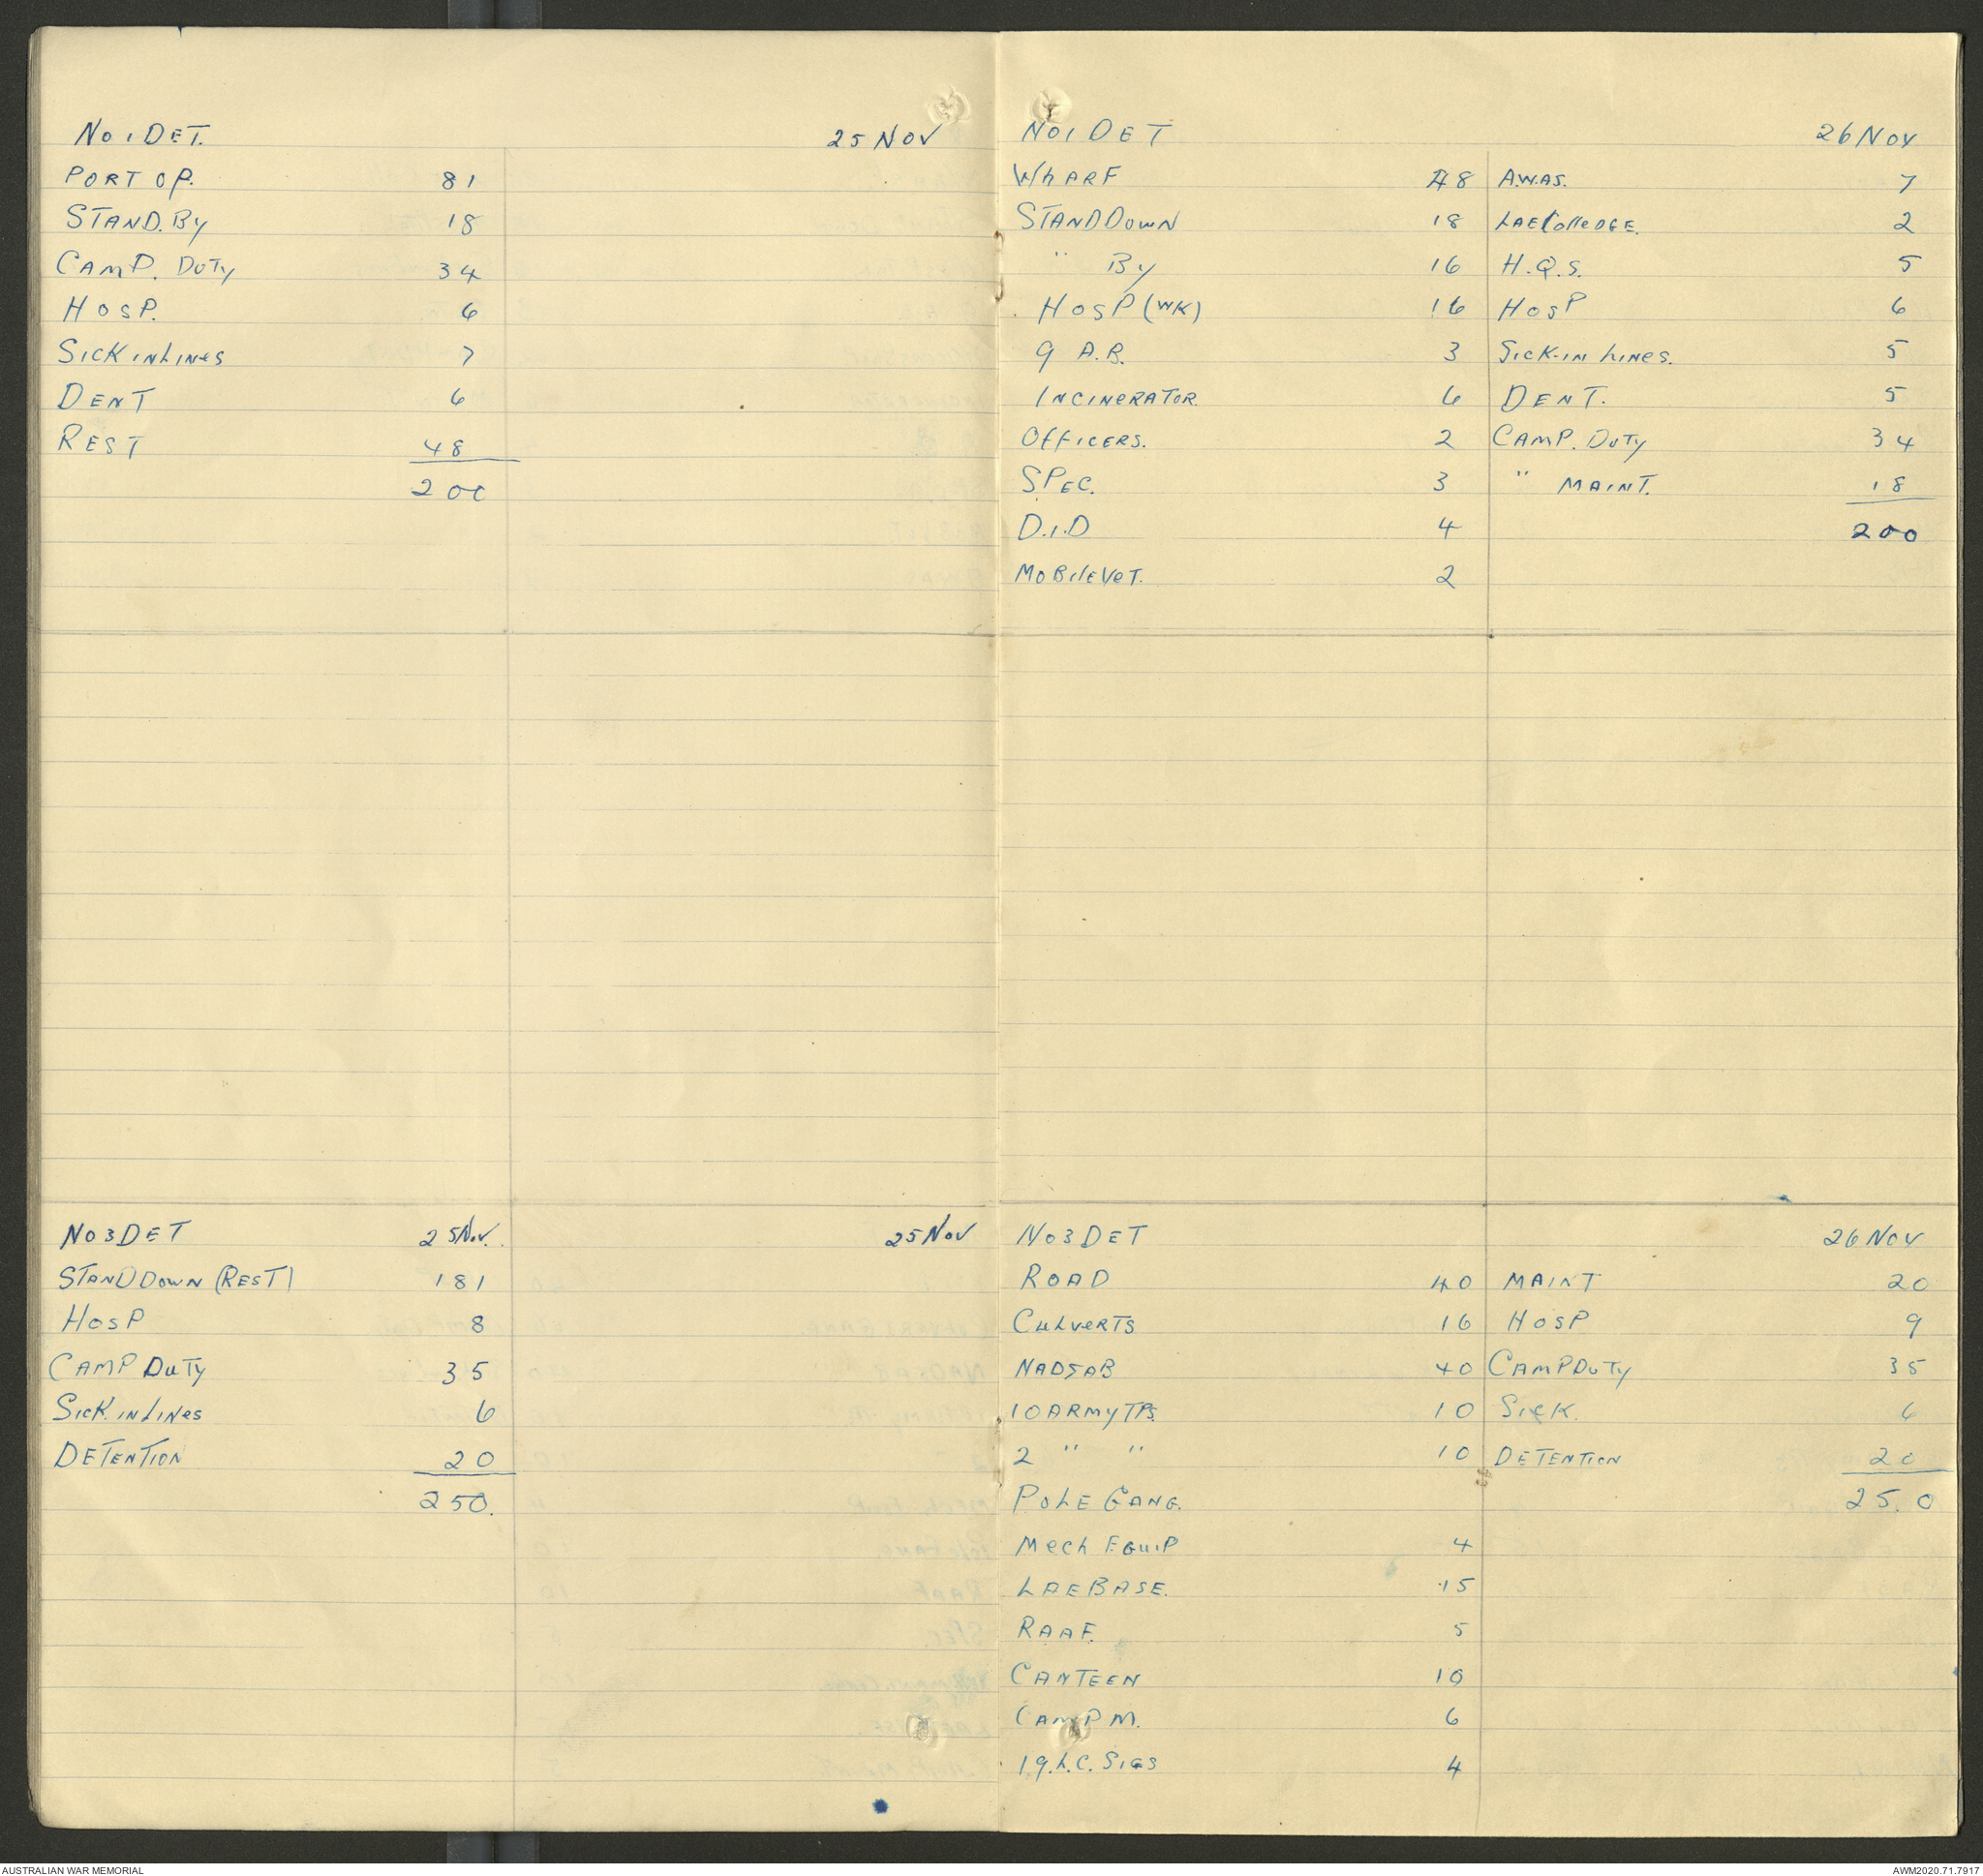 No 1 DET. 25 NOV
PORT OP. 81
STAND. BY 18
CAMP. DUTY 34
HOSP. 6
SICK IN LINES 7
DENT 6
REST 48
200
No 3 DET 25 Nov. 25 NOV
STAND DOWN (REST) 181
HOSP 8
CAMP DUTY 35
SICK. IN LINES 6
DETENTION 20
250.
No 1 DET 26 NOV
WHARF 48
STAND DOWN 18
" BY 16
HOSP (WK) 16
9 A.B. 3
INCINERATOR. 6
OFFICERS. 2
SPEC. 3
D.I.D 4
MOBILE VET. 2
A.W.AS. 7
LAE COLLEDGE. 2
H.Q.S. 5
HOSP 6
SICK-IN LINES. 5
DENT. 5
CAMP. DUTY 34
" MAINT. 18
200
No 3 DET 26 NOV
ROAD 40
CULVERTS 16
NADZAB 40
10 ARMY TPS. 10
2 " " 10
POLE GANG.
MECH EQUIP 4
LAE BASE. 15
RAAF. 5
CANTEEN 10
CAMP M. 6
19. L.C. SIGS 4
MAINT 20
HOSP 9
CAMP DUTY 35
SICK. 6
DETENTION 20
25.0
AUSTRALIAN WAR MEMORIAL AWM2020.71.7917